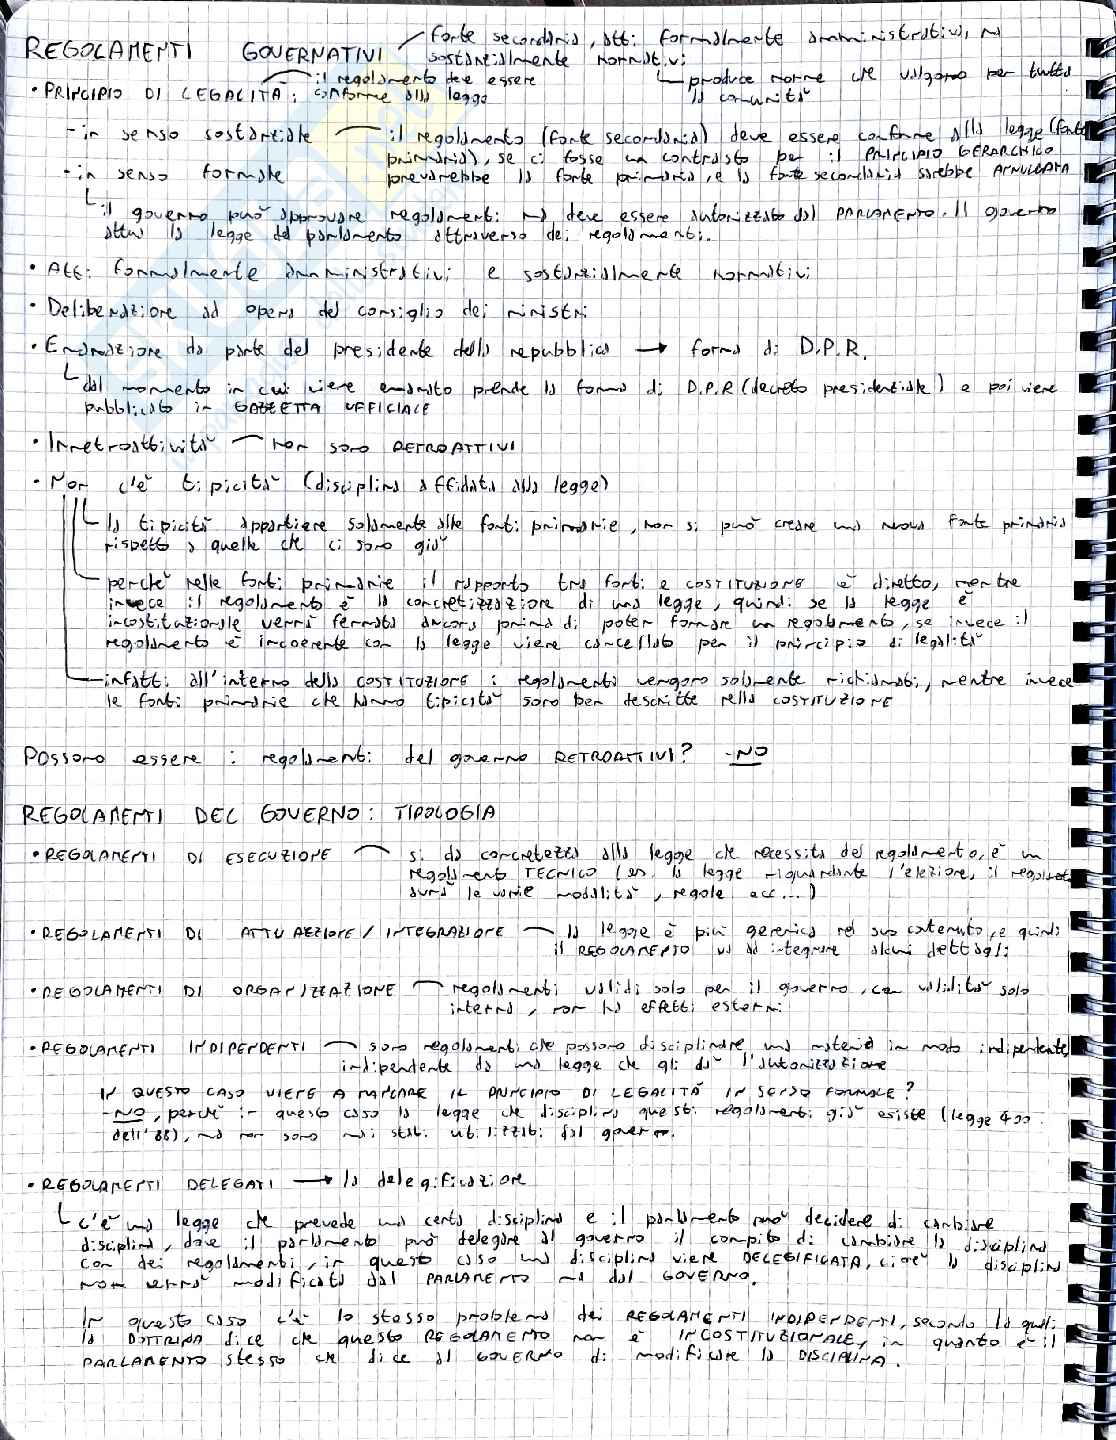 REGOLAMENTI GOVERNATIVI fonte secondaria, atti formalmente amministrativi, ma
sostanzialmente normativi
produce norme che valgono per tutta
la comunità
• PRINCIPIO DI LEGALITÀ: il regolamento deve essere
conforme alla legge
- in senso sostanziale il regolamento (fonte secondaria) deve essere conforme alla legge (fonte
primaria), se ci fosse un contrasto per il PRINCIPIO GERARCHICO
prevarrebbe la fonte primaria, e la fonte secondaria sarebbe ANNULLATA
- in senso formale
il governo può approvare regolamenti ma deve essere autorizzato dal PARLAMENTO. Il governo
attua la legge del parlamento attraverso dei regolamenti.
• Atti formalmente amministrativi e sostanzialmente normativi
• Deliberazione ad opera del consiglio dei ministri
• Emanazione da parte del presidente della repubblica → forma di D.P.R.
dal momento in cui viene emanato prende la forma di D.P.R (decreto presidenziale) e poi viene
pubblicato in GAZZETTA UFFICIALE
• Irretroattività non sono RETROATTIVI
• Non c'è tipicità (disciplina affidata alla legge)
la tipicità appartiene solamente alle fonti primarie, non si può creare una nuova fonte primaria
rispetto a quelle che ci sono già
perché nelle fonti primarie il rapporto tra fonti e COSTITUZIONE è diretto, mentre
invece il regolamento è la concretizzazione di una legge, quindi se la legge è
incostituzionale verrà fermata ancora prima di poter formare un regolamento, se invece il
regolamento è incoerente con la legge viene cancellato per il principio di legalità
infatti all'interno della COSTITUZIONE i regolamenti vengono solamente richiamati, mentre invece
le fonti primarie che hanno tipicità sono ben descritte nella COSTITUZIONE
Possono essere i regolamenti del governo RETROATTIVI? - NO
REGOLAMENTI DEL GOVERNO: TIPOLOGIA
• REGOLAMENTI DI ESECUZIONE si da concretezza alla legge che necessita del regolamento, è un
regolamento TECNICO (es. la legge riguardante l'elezione, il regolamento
avrà le varie modalità, regole ecc...)
• REGOLAMENTI DI ATTUAZIONE/INTEGRAZIONE la legge è più generica nel suo contenuto, e quindi
il REGOLAMENTO va ad integrare alcuni dettagli
• REGOLAMENTI DI ORGANIZZAZIONE regolamenti validi solo per il governo, con validità solo
interna, non ha effetti esterni
• REGOLAMENTI INDIPENDENTI sono regolamenti che possono disciplinare una materia in modo indipendente,
indipendente da una legge che gli dà l'autorizzazione
IN QUESTO CASO VIENE A MANCARE IL PRINCIPIO DI LEGALITÀ IN SENSO FORMALE?
- NO, perché in questo caso la legge che disciplina questi regolamenti già esiste (legge 400
dell'88), ma non sono mai stati utilizzati dal governo.
• REGOLAMENTI DELEGATI → la delegificazione
c'è una legge che prevede una certa disciplina e il parlamento può decidere di cambiare
disciplina, dove il parlamento può delegare al governo il compito di cambiare la disciplina
con dei regolamenti, in questo caso una disciplina viene DELEGIFICATA, cioè la disciplina
non verrà modificata dal PARLAMENTO ma dal GOVERNO.
In questo caso c'è lo stesso problema dei REGOLAMENTI INDIPENDENTI, secondo la quale
la DOTTRINA dice che questo REGOLAMENTO non è INCOSTITUZIONALE, in quanto è il
PARLAMENTO stesso che dice al GOVERNO di modificare la DISCIPLINA.